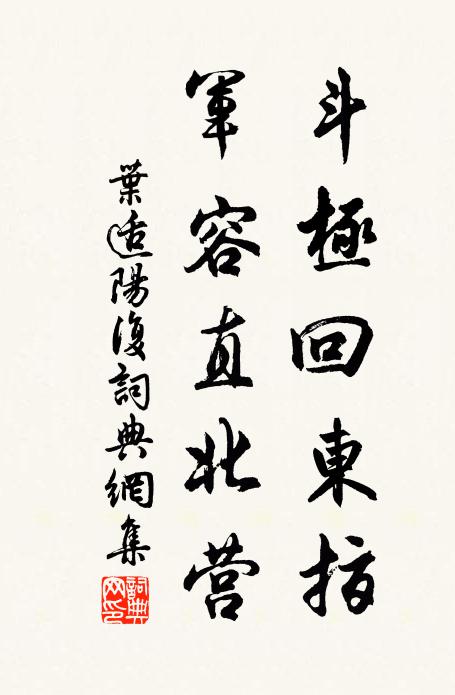 斗極回東指
軍容直北营
葉适陽復詞典網集
詞典网印